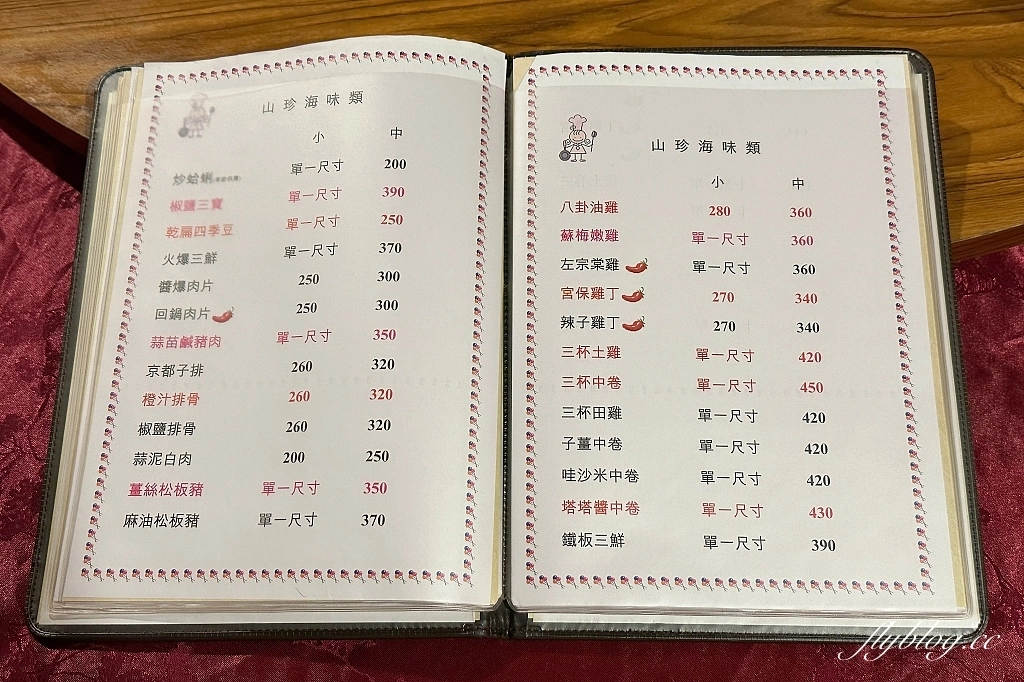 山珍海味類
小 中
炒蛤蜊 單一尺寸 200
椒鹽三寶 單一尺寸 390
乾扁四季豆 單一尺寸 250
火爆三鮮 單一尺寸 370
醬爆肉片 250 300
回鍋肉片 250 300
蒜苗鹹豬肉 單一尺寸 350
京都子排 260 320
橙汁排骨 260 320
椒鹽排骨 260 320
蒜泥白肉 200 250
薑絲松板豬 單一尺寸 350
麻油松板豬 單一尺寸 370
山珍海味類
小 中
八卦油雞 280 360
蘇梅嫩雞 單一尺寸 360
左宗棠雞 單一尺寸 360
宮保雞丁 270 340
辣子雞丁 270 340
三杯土雞 單一尺寸 420
三杯中卷 單一尺寸 450
三杯田雞 單一尺寸 420
子薑中卷 單一尺寸 420
哇沙米中卷 單一尺寸 420
塔塔醬中卷 單一尺寸 430
鐵板三鮮 單一尺寸 390
flyblog.cc